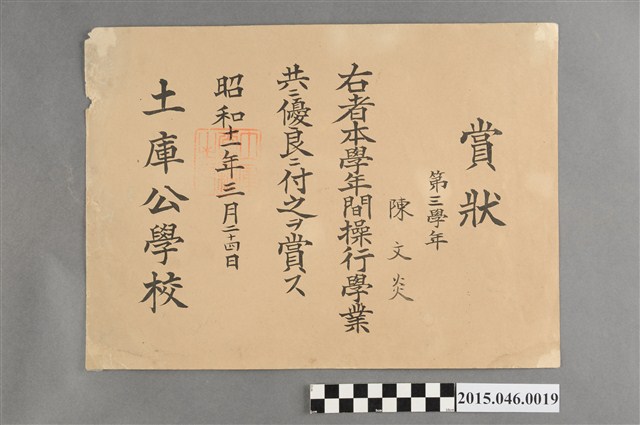 賞狀
第三學年
陳文炎
右者本學年間操行學業
共ニ優良ニ付之ヲ賞ス
昭和十一年三月二十四日
土庫公學校
2015.046.0019